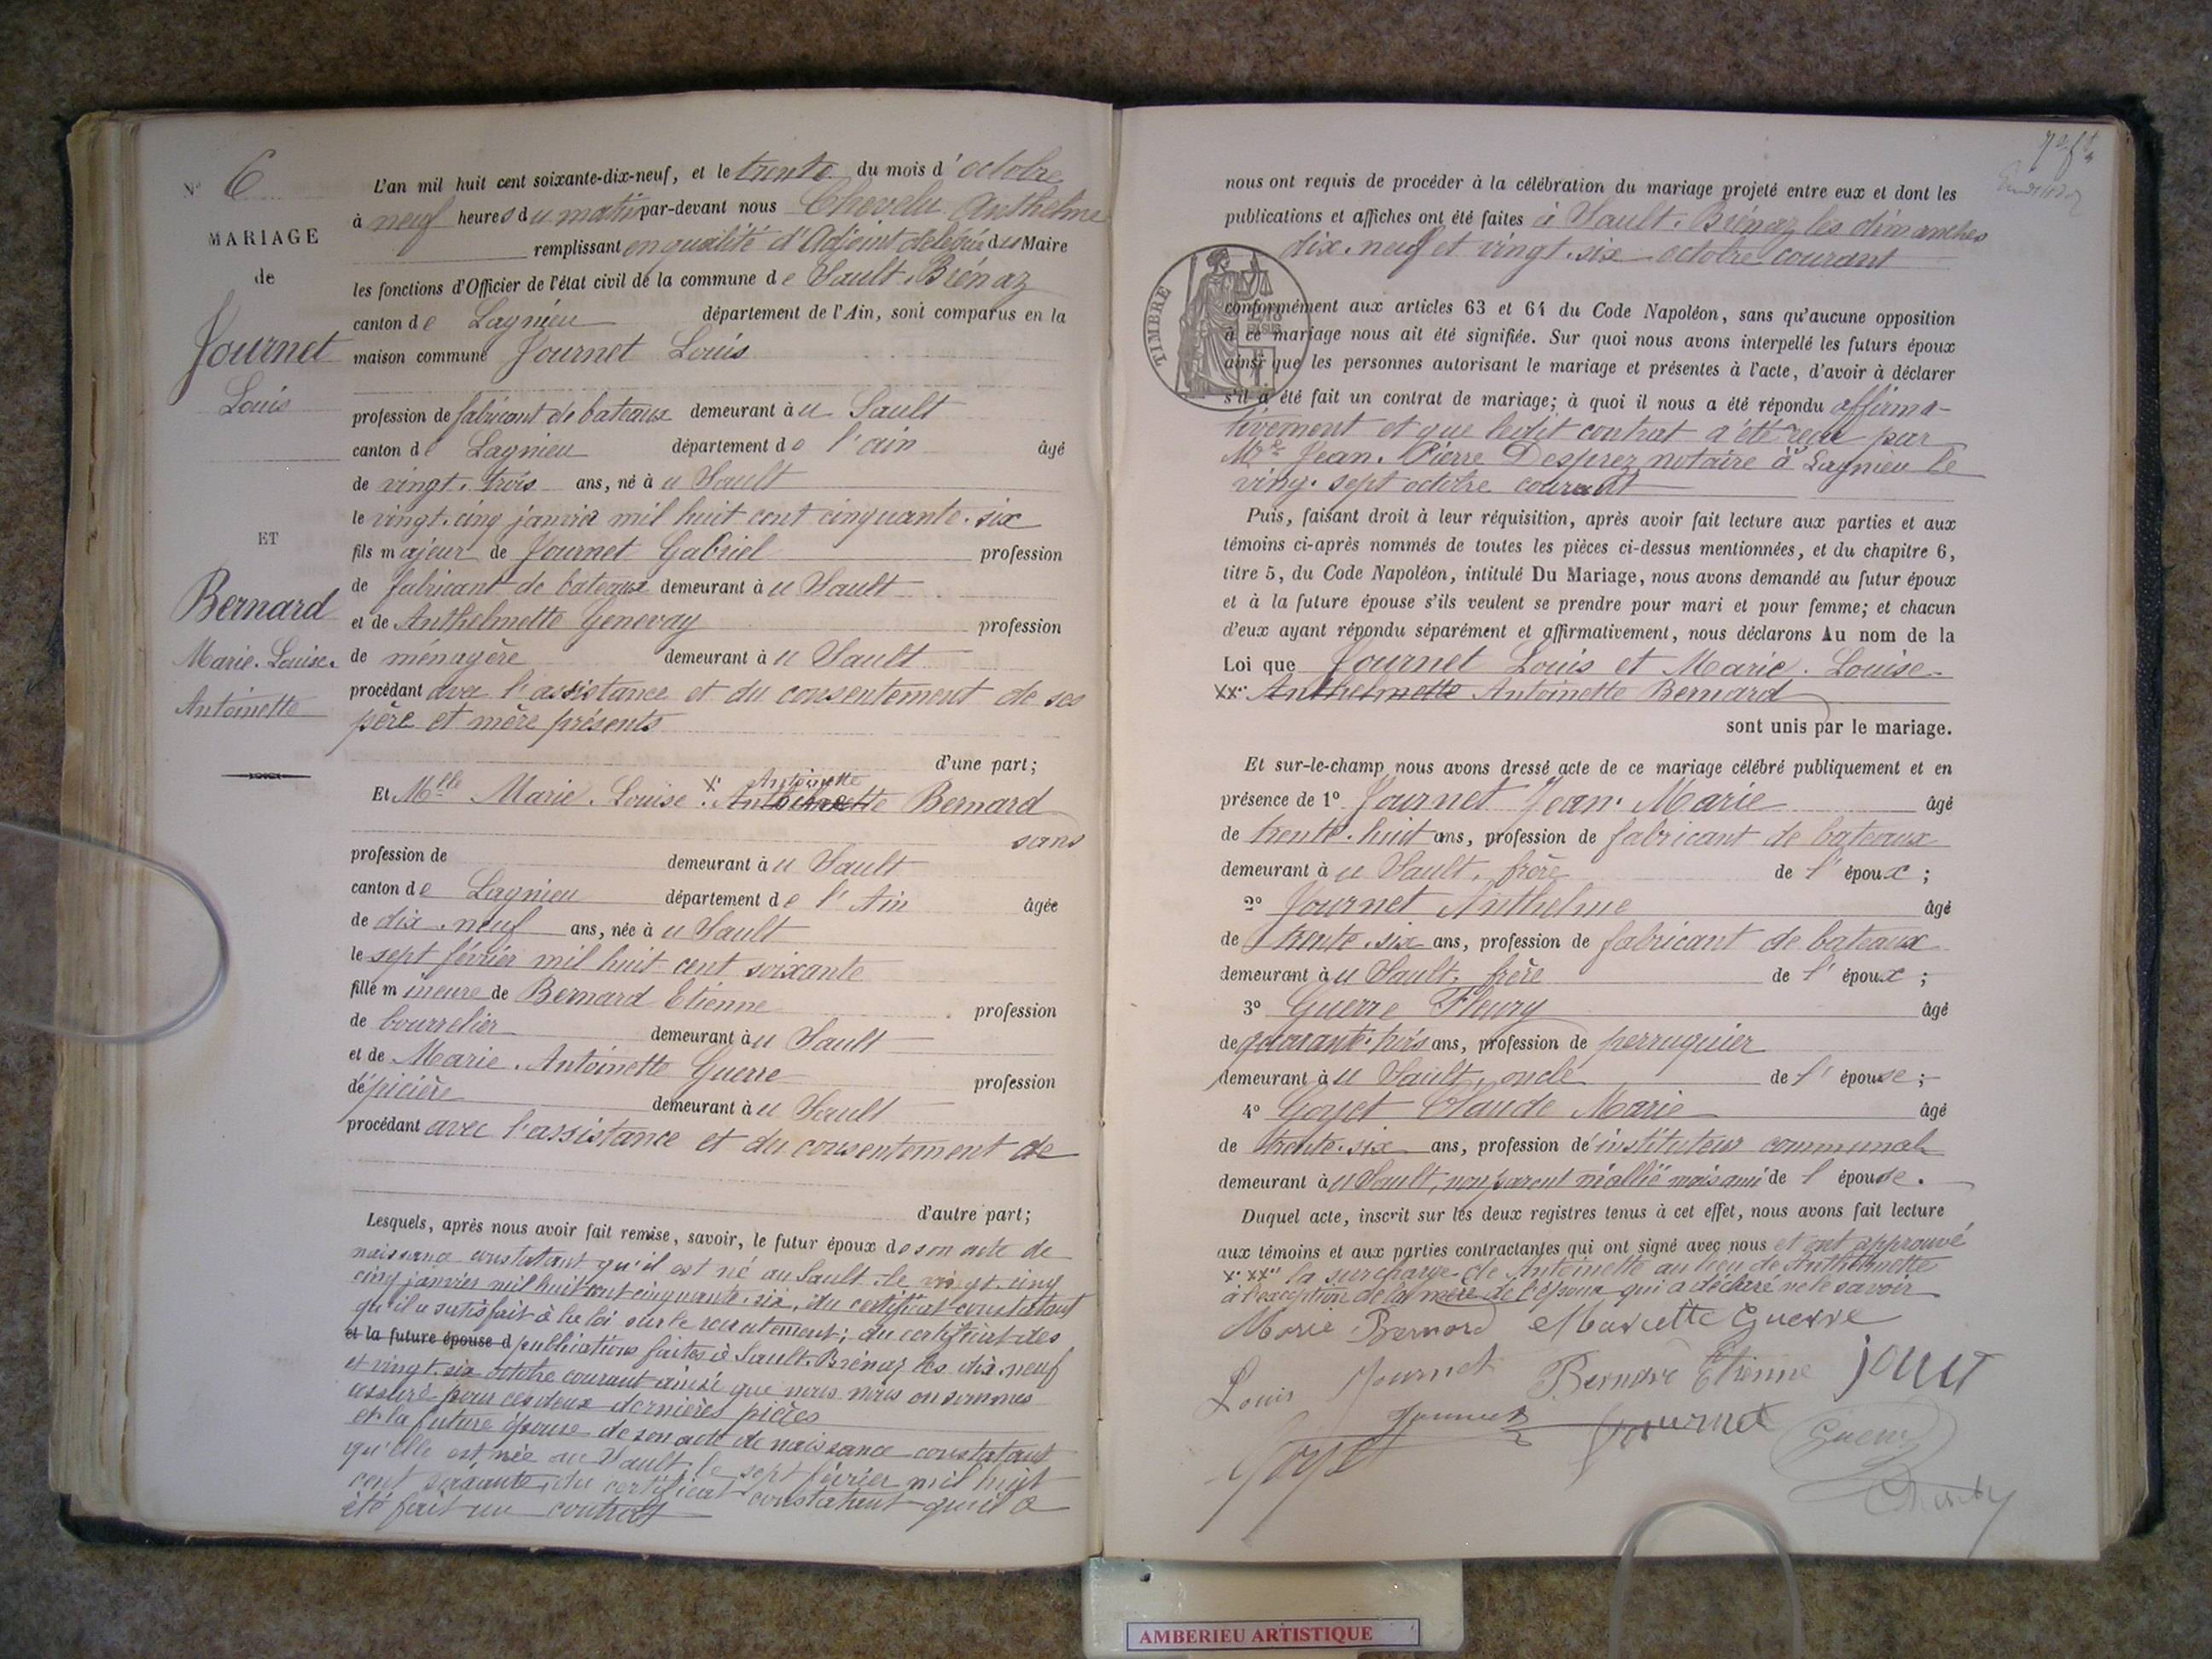 N° 6
MARIAGE
de
Journet
Louis
ET
Bernard
Marie. Louise.
Antoinette
L'an mil huit cent soixante-dix-neuf, et le trente du mois d'octobre
à neuf heures du matin par-devant nous Chevelu Anthelme
remplissant en qualité d'Adjoint délégué du Maire
les fonctions d'Officier de l'état civil de la commune de Sault. Brénaz
canton de Lagnieu département de l'Ain, sont comparus en la
maison commune Journet Louis
profession de fabricant de bateaux demeurant à u Sault
canton de Lagnieu département de l'ain âgé
de vingt. trois ans, né à u Sault
le vingt. cinq janvier mil huit cent cinquante. six
fils majeur de Journet Gabriel profession
de fabricant de bateaux demeurant à u Sault
et de Anthelmette Genevay profession
de ménagère demeurant à u Sault
procédant avec l'assistance et du consentement de ses
père et mère présents
d'une part;
Antoinette
Et Mlle Marie. Louise. Bernard
sans
profession de demeurant à u Sault
canton de Lagnieu département de l'Ain âgée
de dix. neuf ans, née à u Sault
le sept février mil huit cent soixante
fille mineure de Bernard Etienne profession
de bourrelier demeurant à u Sault
et de Marie. Antoinette Guerre profession
d'épicière demeurant à u Sault
procédant avec l'assistance et du consentement de
d'autre part;
Lesquels, après nous avoir fait remise, savoir, le futur époux de son acte de
naissance constatant qu'il est né au Sault le vingt. cinq
cinq janvier mil huit cent cinquante. six, du certificat constatant
qu'il a satisfait à la loi sur le recrutement; du certificat des
et la future épouse d publications faites à Sault. Brénaz les dix. neuf
et vingt. six octobre courant ainsi que nous nous en sommes
assuré pour ces deux dernières pièces
et la future épouse de son acte de naissance constatant
qu'elle est née au Sault, le sept février mil huit
cent soixante, du certificat constatant qu'il a
été fait un contrat
nous ont requis de procéder à la célébration du mariage projeté entre eux et dont les
publications et affiches ont été faites à Sault. Brénaz les dimanches
dix. neuf et vingt. six octobre courant
TIMBRE
conformément aux articles 63 et 64 du Code Napoléon, sans qu'aucune opposition
à ce mariage nous ait été signifiée. Sur quoi nous avons interpellé les futurs époux
ainsi que les personnes autorisant le mariage et présentes à l'acte, d'avoir à déclarer
s'il a été fait un contrat de mariage; à quoi il nous a été répondu affirma-
tivement et que ledit contrat a été reçu par
Me Jean. Pierre Desprez notaire à Lagnieu le
vingt. sept octobre courant
Puis, faisant droit à leur réquisition, après avoir fait lecture aux parties et aux
témoins ci-après nommés de toutes les pièces ci-dessus mentionnées, et du chapitre 6,
titre 5, du Code Napoléon, intitulé Du Mariage, nous avons demandé au futur époux
et à la future épouse s'ils veulent se prendre pour mari et pour femme; et chacun
d'eux ayant répondu séparément et affirmativement, nous déclarons Au nom de la
Loi que Journet Louis et Marie. Louise.
XX Anthelmette Antoinette Bernard
sont unis par le mariage.
Et sur-le-champ nous avons dressé acte de ce mariage célébré publiquement et en
présence de 1° Journet Jean. Marie âgé
de trente. huit ans, profession de fabricant de bateaux
demeurant à u Sault, frère de l'époux;
2° Journet Anthelme âgé
de trente. six ans, profession de fabricant de bateaux
demeurant à u Sault, frère de l'époux;
3° Guerre Fleury âgé
de quarante. trois ans, profession de perruquier
demeurant à u Sault, oncle de l'épouse;
4° Goyet Claude Marie âgé
de trente. six ans, profession d'instituteur communal
demeurant à u Sault, non parent ni allié mais ami de l'épouse.
Duquel acte, inscrit sur les deux registres tenus à cet effet, nous avons fait lecture
aux témoins et aux parties contractantes qui ont signé avec nous et ont approuvé
X. XX. la surcharge de Antoinette au lieu de Anthelmette
à l'exception de la mère de l'époux qui a déclaré ne le savoir
Marie Bernard Mariette Guerre
Louis Journet Bernard Etienne
Journet Journet
Goyet Guerre
Chevelu
AMBERIEU ARTISTIQUE